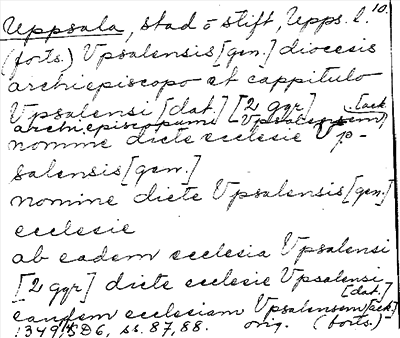 Uppsala, stad o stift, Upps. l. 10.
(forts.) Vpsalensis [gen.] diocesis
archiepiscopo et cappitulo
Vpsalensi [dat.] [2 ggr]
archiepiscopum Vpsalensem [ack.]
nomine dicte ecclesie Vp-
salensis [gen.]
nomine dicte Vpsalensis [gen.]
ecclesie
ab eadem ecclesia Vpsalensi
[2 ggr] dicte ecclesie Vpsalensi [dat.]
eandem ecclesiam Vpsalensem [ack.]
1349, SD6, ss. 87, 88. orig. (forts.)